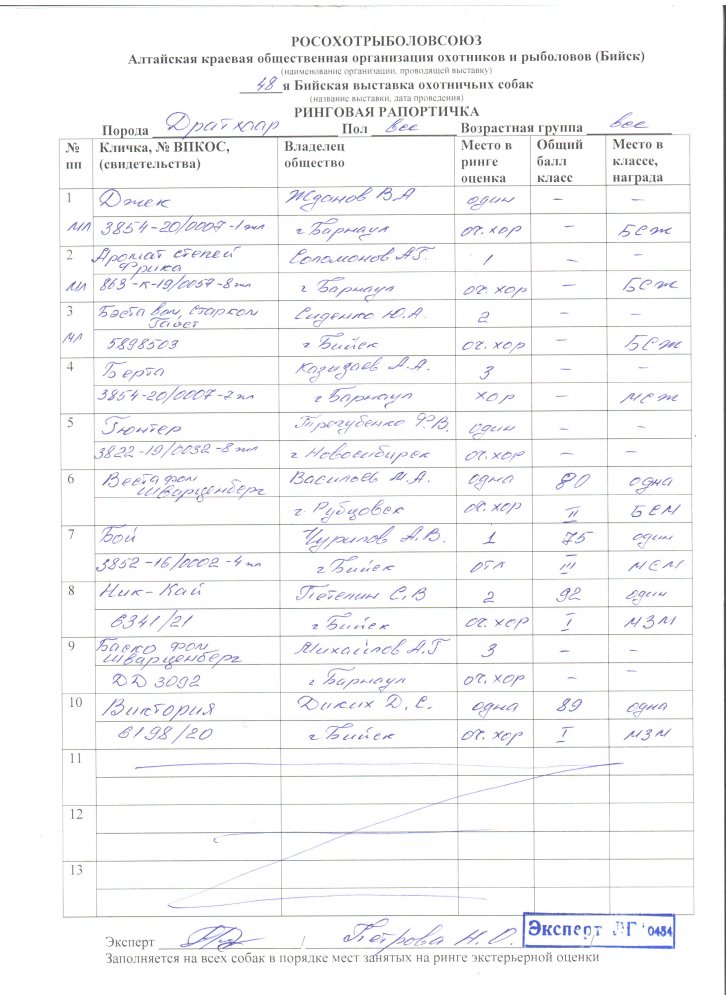 РОСОХОТРЫБОЛОВСОЮЗ
Алтайская краевая общественная организация охотников и рыболовов (Бийск)
(наименование организации, проводящей выставку)
48 я Бийская выставка охотничьих собак
(название выставки, дата проведения)
РИНГОВАЯ РАПОРТИЧКА
Порода Дратхаар Пол все Возрастная группа все
№ пп Кличка, № ВПКОС, (свидетельства) Владелец общество Место в ринге оценка Общий балл класс Место в классе, награда
1 Джек Жданов В.А один – –
мл 3854-20/0007-1мл г Барнаул оч. хор – БСЖ
2 Аромат степей Фрика Соломонов А.Г. 1 – –
мл 863-к-19/0057-8мл г Барнаул оч. хор – БСЖ
3 Бэста вом Старком Гайст Сиденко Ю.А. 2 – –
мл 5898503 г Бийск оч. хор – БСЖ
4 Берта А.А. 3 – –
3854-20/0007-7мл г Барнаул хор – МСЖ
5 Гюнтер Трегубенко Ф.В. один – –
3822-19/0032-8мл г Новосибирск оч. хор – –
6 Веста фон Шварценберг Васильев М.А. одна 80 одна
г Рубцовск оч. хор II БСМ
7 Бой Чурилов А.В. 1 75 один
3852-16/0002-4мл г Бийск отл III МСМ
8 Ник-Кай Петелин С.В 2 92 один
6341/21 г Бийск оч. хор I МЗМ
9 Баско фон Шварценберг Михайлов А.Г 3 – –
DD 3092 г Барнаул оч. хор – –
10 Виктория Диких Д.С. одна 89 одна
6198/20 г Бийск оч. хор I МЗМ
11
12
13
Эксперт / Петрова Н.О. / Эксперт ЛГ 0454
Заполняется на всех собак в порядке мест занятых на ринге экстерьерной оценки